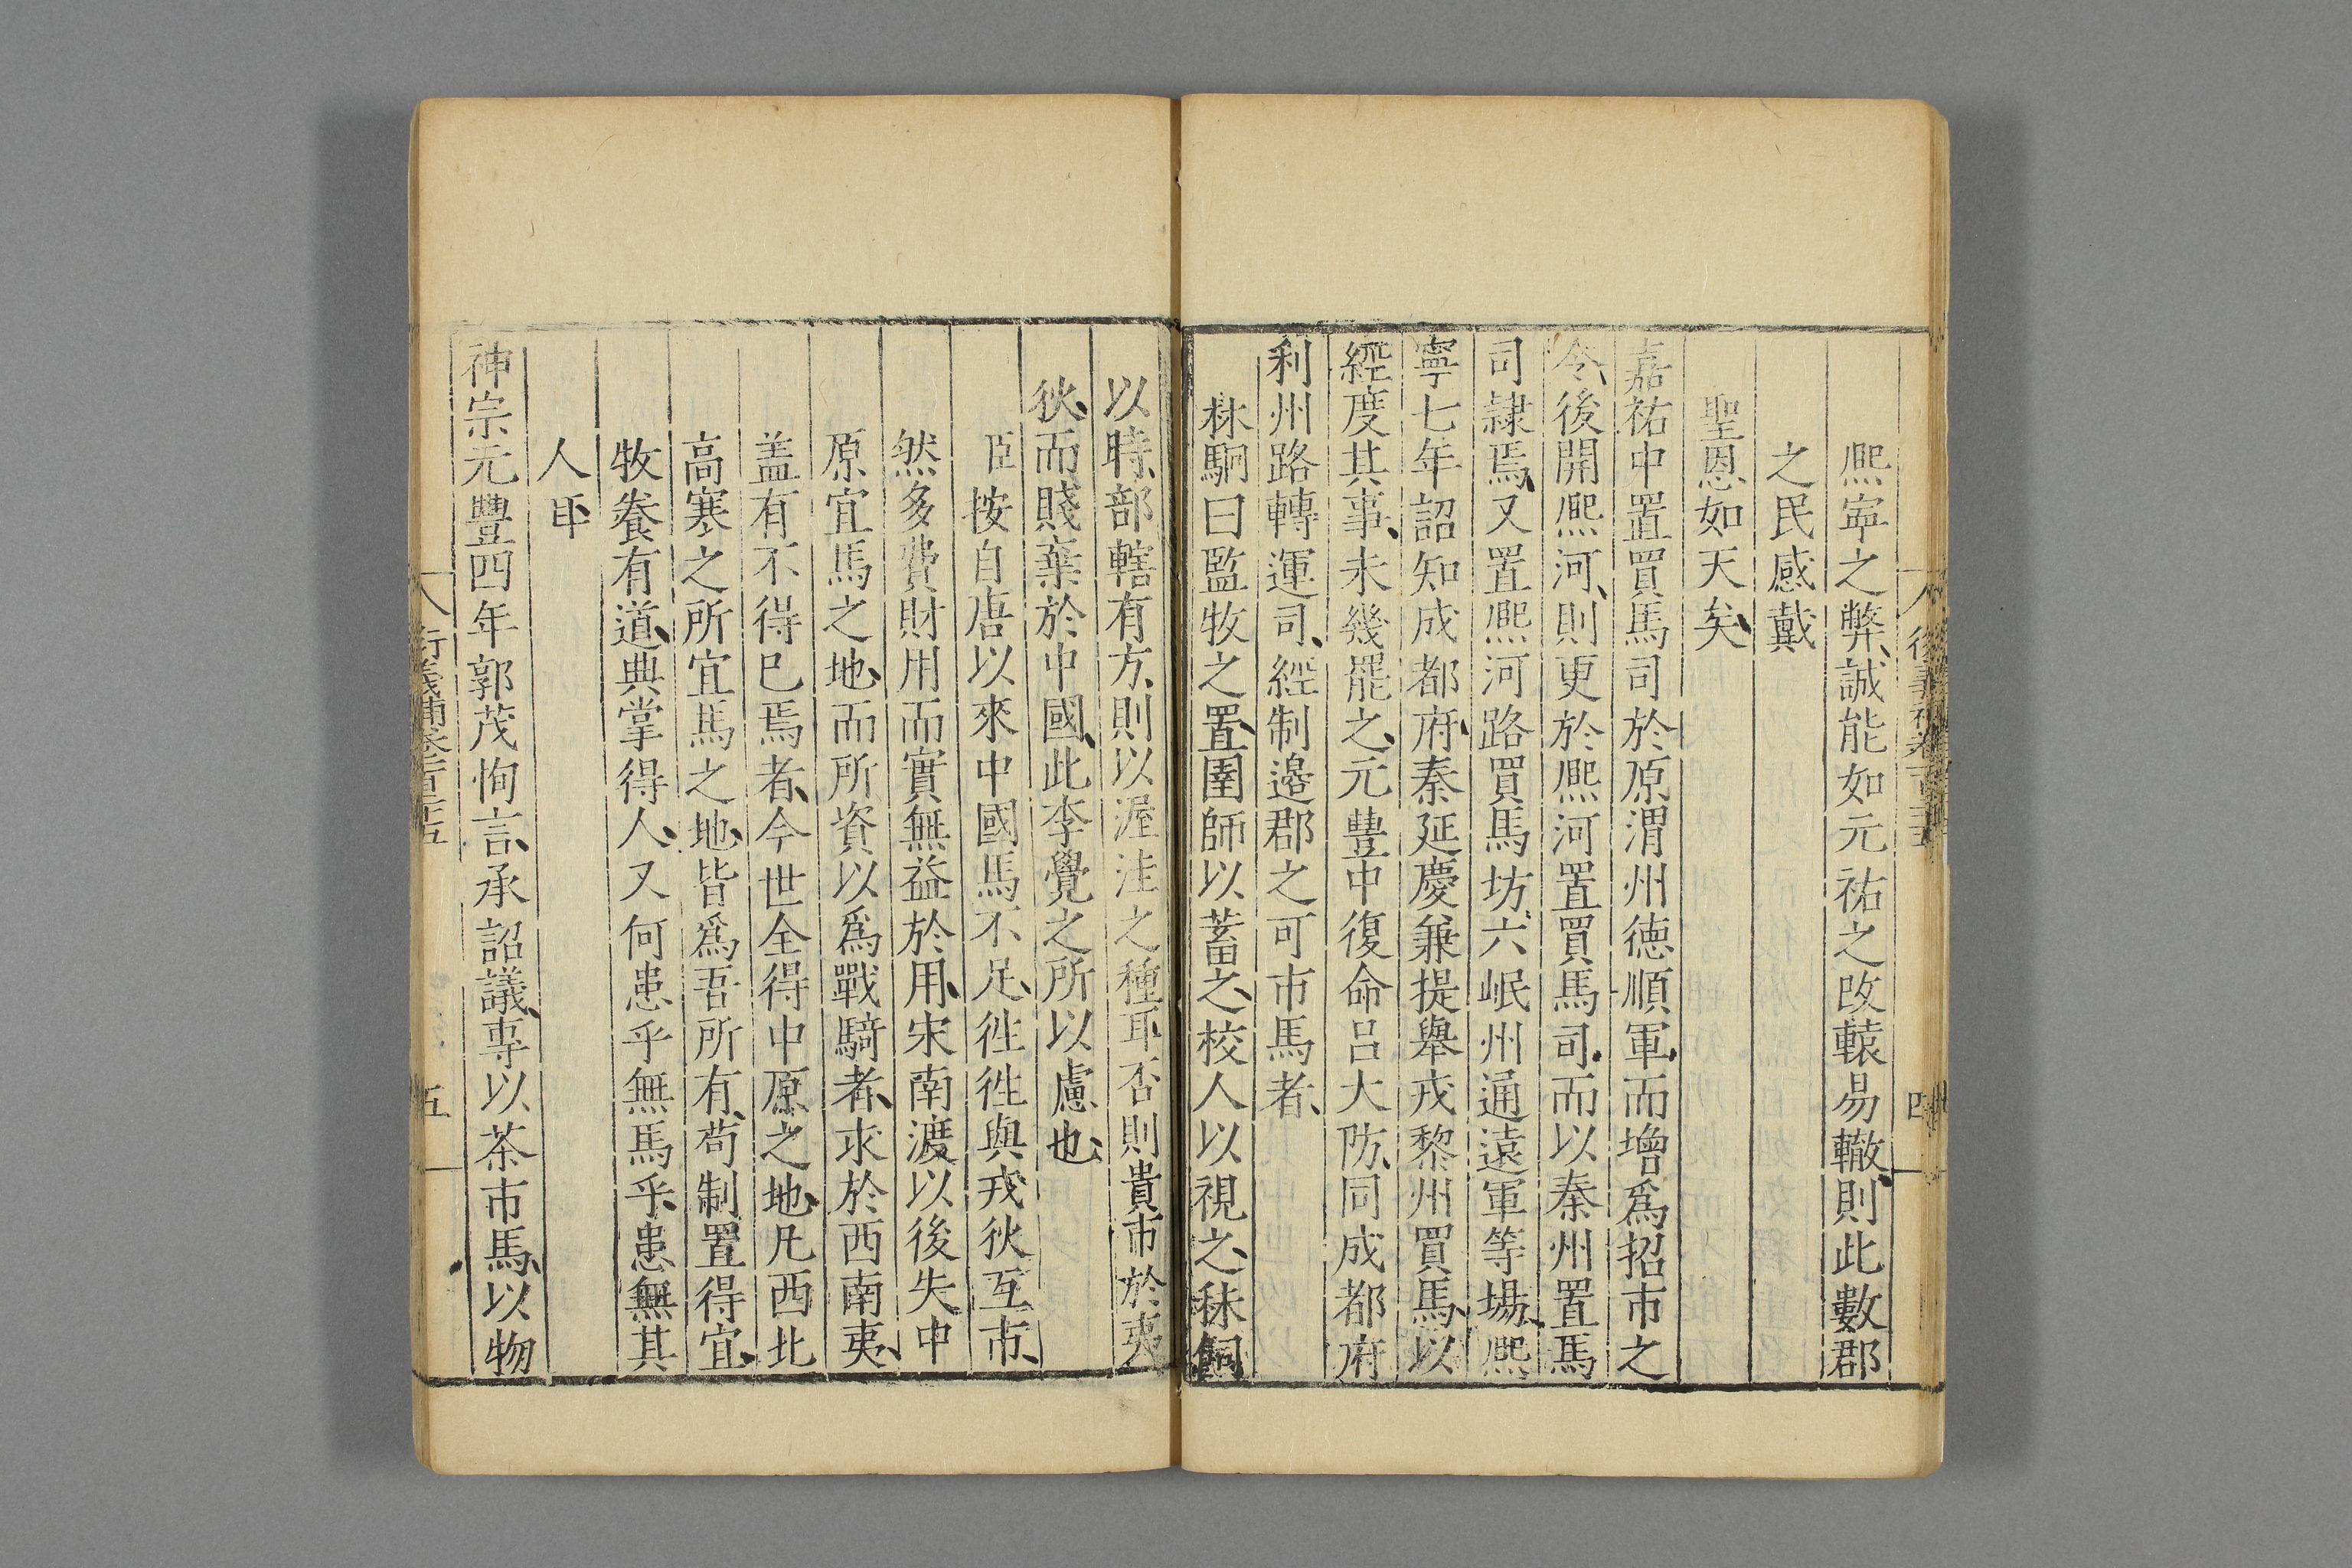 熈寕之弊誠能如元祐之改轅易轍則此數郡
之民感戴
聖恩如天矣
嘉祐中置買馬司於原渭州德順軍而增爲招市之
令後開熈河則更於熈河置買馬司而以秦州置馬
司隷焉又置熈河路買馬坊六岷州通遠軍等場熈
寧七年詔知成都府秦延慶兼提舉戎黎州買馬以
經度其事未幾罷之元豐中復命呂大防同成都府
利州路轉運司經制邊郡之可市馬者
林駉曰監牧之置圉師以蓄之校人以視之秣飼
以時部轄有方則以渥洼之種耳否則貴市於夷
狄而賤棄於中國此李覺之所以慮也
臣按自唐以來中國馬不足徃徃與戎狄互市
然多費財用而實無益於用宋南渡以後失中
原宜馬之地而所資以爲戰騎者求於西南夷
盖有不得巳焉者今世全得中原之地凡西北
高寒之所宜馬之地皆爲吾所有苟制置得宜
牧養有道典掌得人又何患乎無馬乎患無其
人耳
神宗元豐四年郭茂恂言承詔議專以茶市馬以物
衍義補卷一百二十五
五
四